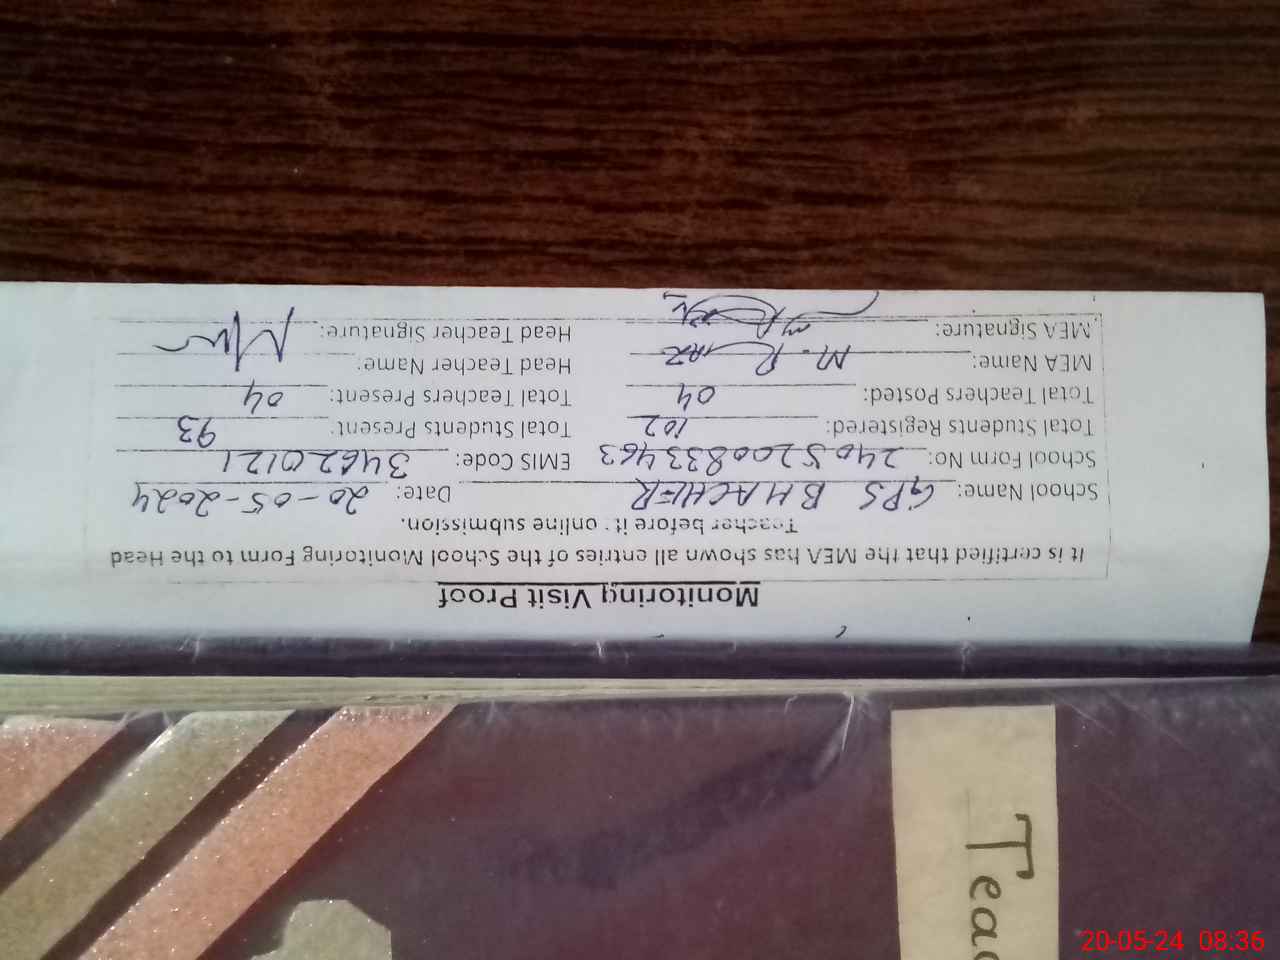 Monitoring Visit Proof
It is certified that the MEA has shown all entries of the School Monitoring Form to the Head
Teacher before it online submission.
School Name: GPS BHACHER Date: 20-05-2024
School Form No: 2405200833463 EMIS Code: 34620121
Total Students Registered: 102 Total Students Present: 93
Total Teachers Posted: 04 Total Teachers Present: 04
MEA Name: M. Riaz Head Teacher Name:
MEA Signature: Head Teacher Signature:
Teac
20-05-24 08:36